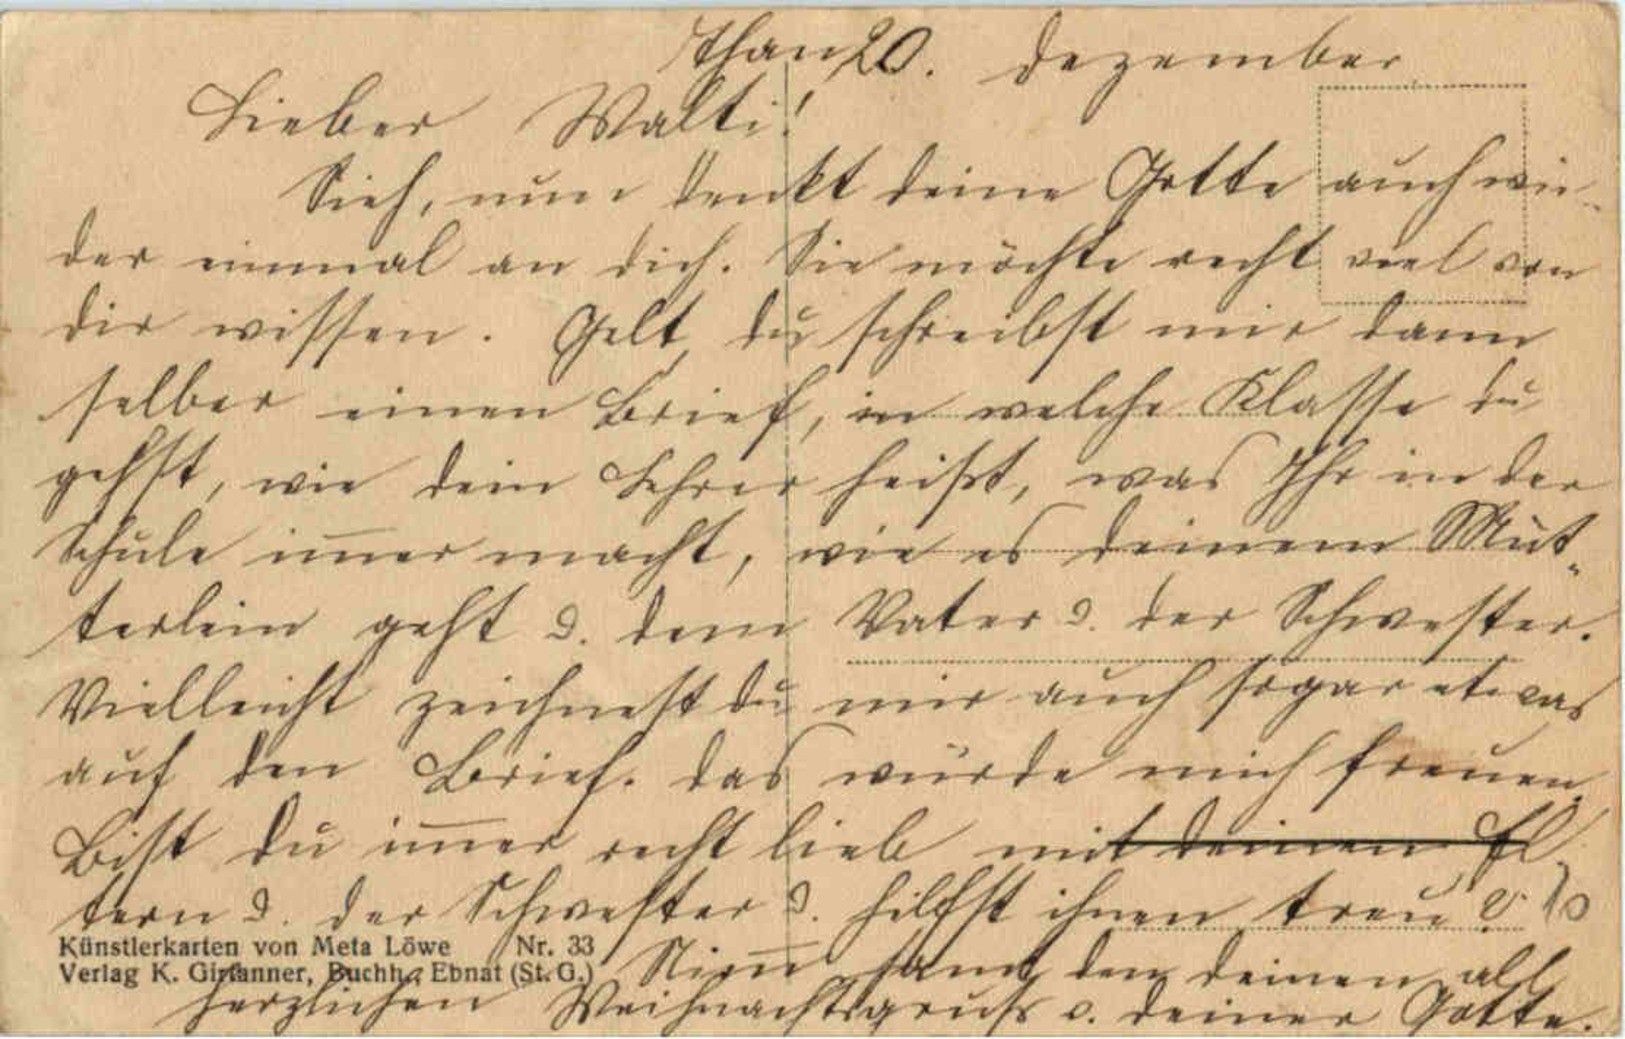 Than, 20. Dezember.
Lieber Walti!
Sieh, nun denkt deine Gotte auch wie-
der einmal an dich. Sie möchte recht viel von
dir wissen. Gelt, du schreibst mir dann
selber einen Brief, in welche Klasse du
gehst, wie dein Lehrer heißt, was Ihr in der
Schule im̅er macht, wie es deinem Müt-
terlein geht u. dem Vater u. der Schwester.
Vielleicht zeichnest du mir auch sogar etwas
auf den Brief. Das würde mich freuen.
Bist du im̅er recht lieb mit deinen El
tern u. der Schwester u. hilfst ihnen treu?
Künstlerkarten von Meta Löwe Nr. 33
Verlag K. Girtanner, Buchh., Ebnat (St. G.)
Nim̅ samt den deinen all
herzlichen Weihnachtsgruss v. deiner Gotte.